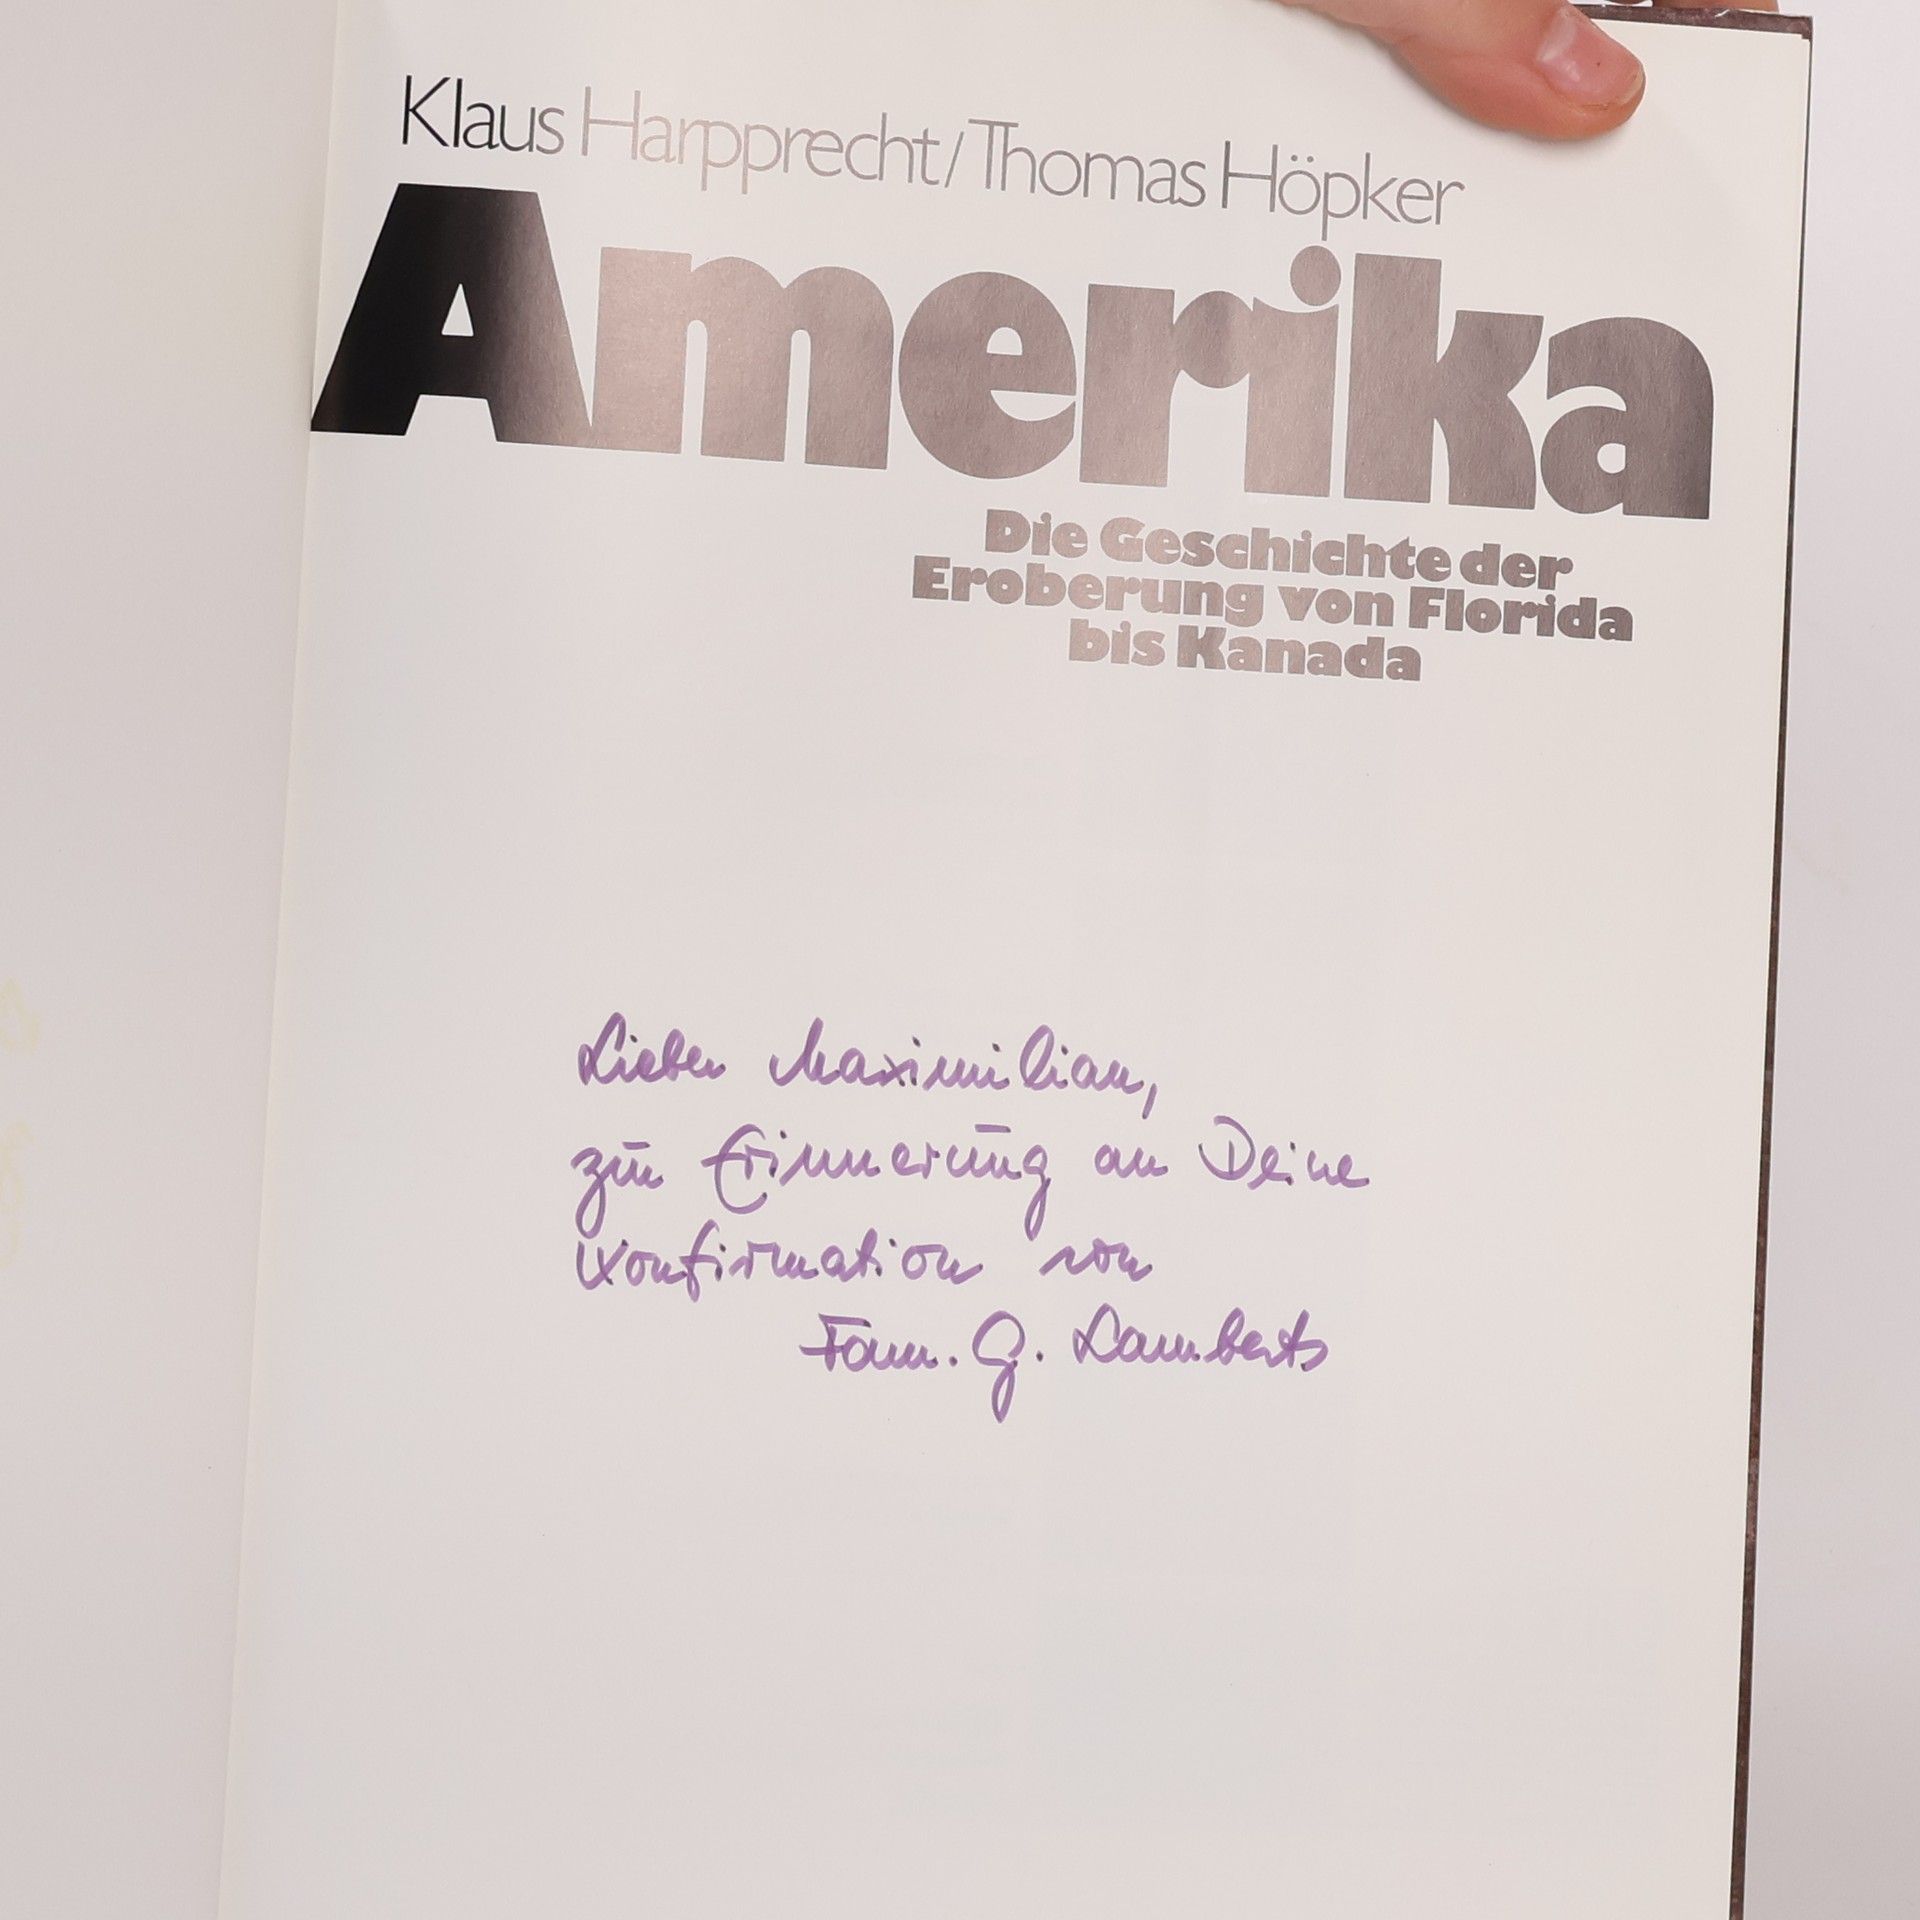 Klaus Harpprecht/Thomas Höpker
Amerika
Die Geschichte der
Eroberung von Florida
bis Kanada
Lieber Maximilian,
zur Erinnerung an Deine
Konfirmation von
Fam. G. Lamberts